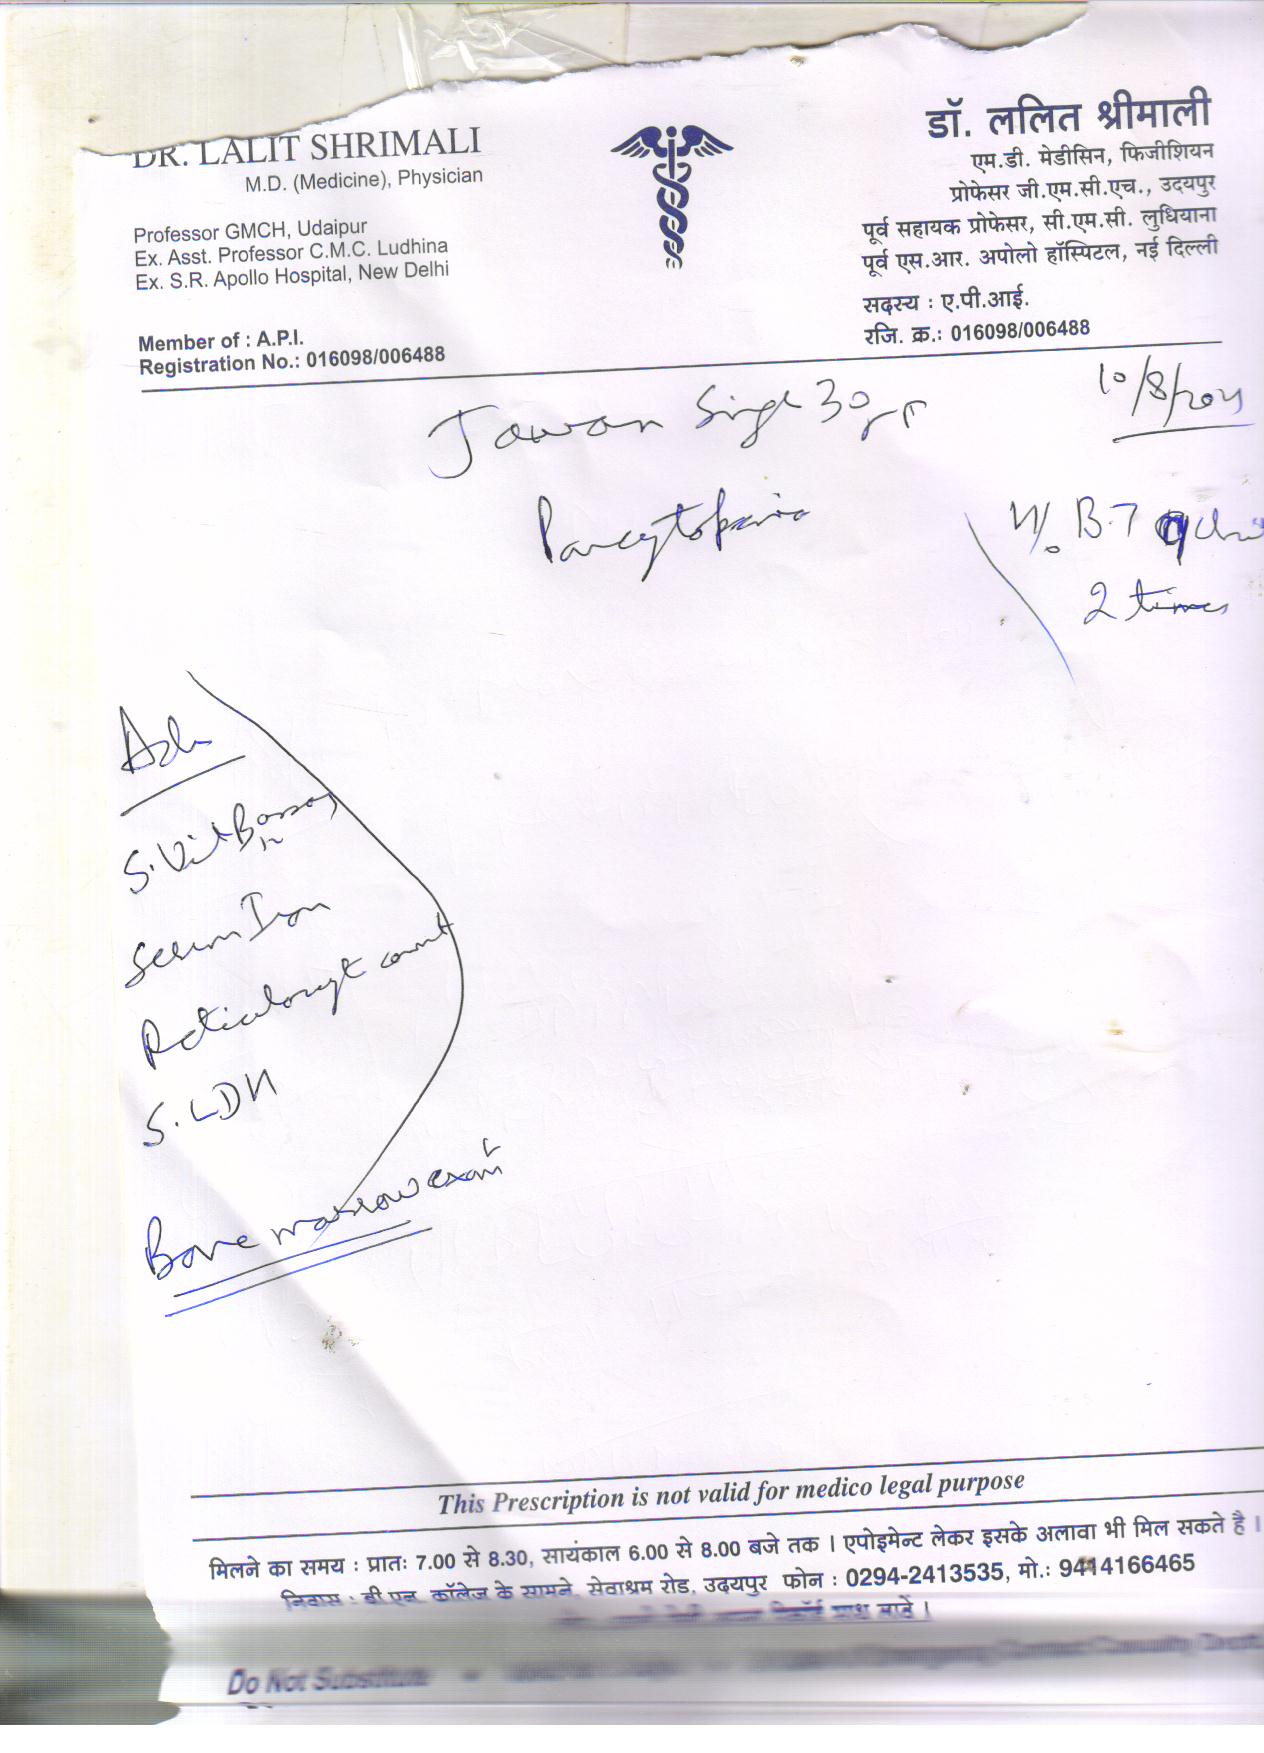 DR. LALIT SHRIMALI
M.D. (Medicine), Physician
Professor GMCH, Udaipur
Ex. Asst. Professor C.M.C. Ludhina
Ex. S.R. Apollo Hospital, New Delhi
Member of : A.P.I.
Registration No.: 016098/006488
डॉ. ललित श्रीमाली
एम.डी. मेडीसिन, फिजीशियन
प्रोफेसर जी.एम.सी.एच., उदयपुर
पूर्व सहायक प्रोफेसर, सी.एम.सी. लुधियाना
पूर्व एस.आर. अपोलो हॉस्पिटल, नई दिल्ली
सदस्य : ए.पी.आई.
रजि. क्र.: 016098/006488
10/8/2021
Jawan Singh 30
Pancytopenia
B.T
2 times
Adv
S. Vit B12 assay
Serum Iron
Reticulocyte count
S. LDH
Bone marrow exam
This Prescription is not valid for medico legal purpose
मिलने का समय : प्रातः 7.00 से 8.30, सायंकाल 6.00 से 8.00 बजे तक । एपोइमेन्ट लेकर इसके अलावा भी मिल सकते है ।
निवास : बी.एन. कॉलेज के सामने, सेवाश्रम रोड, उदयपुर फोन : 0294-2413535, मो.: 9414166465
साथ लावें ।
Do Not Substitute